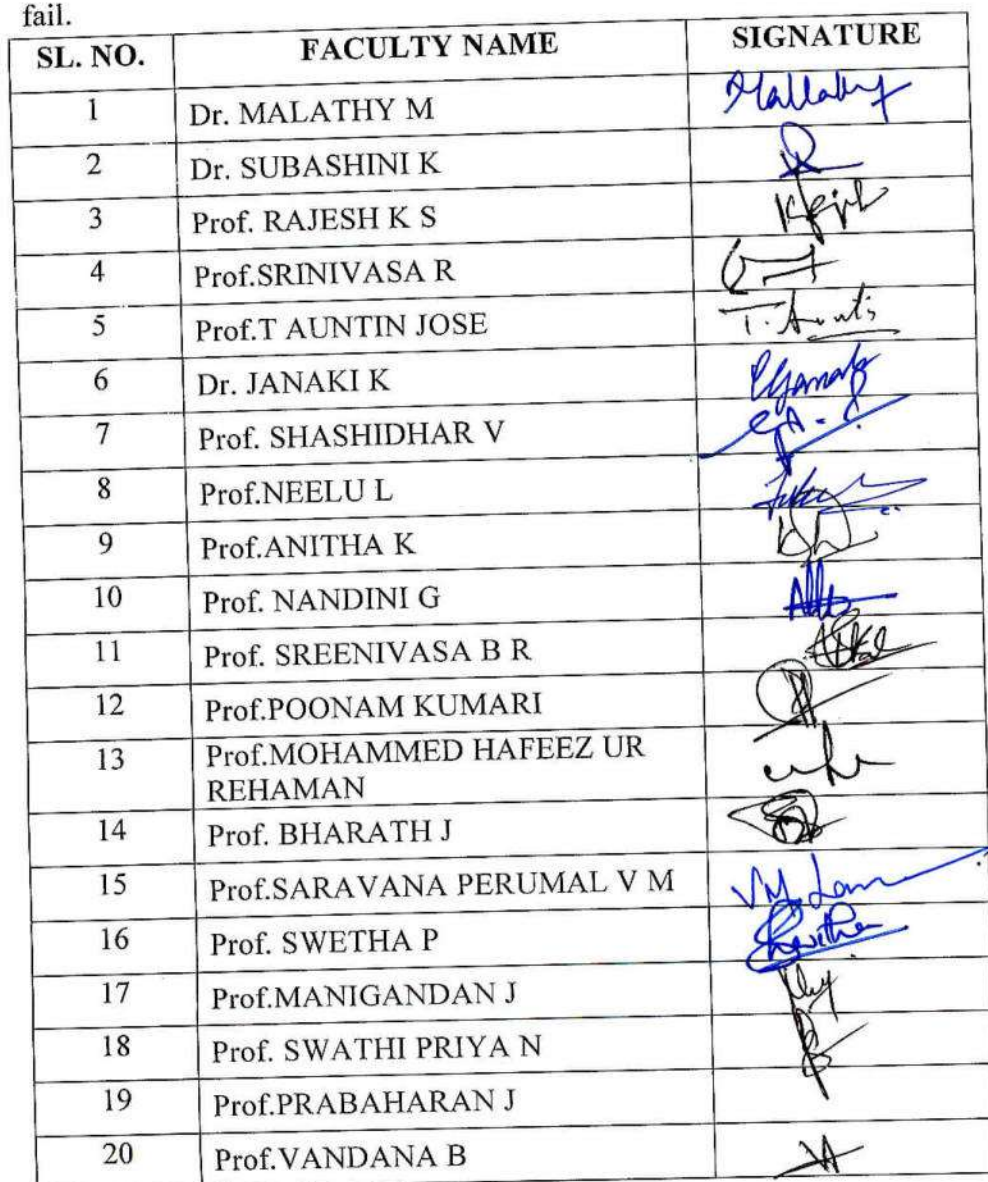 fail.
SL. NO. FACULTY NAME SIGNATURE
1 Dr. MALATHY M
2 Dr. SUBASHINI K
3 Prof. RAJESH K S
4 Prof.SRINIVASA R
5 Prof.T AUNTIN JOSE
6 Dr. JANAKI K
7 Prof. SHASHIDHAR V
8 Prof.NEELU L
9 Prof.ANITHA K
10 Prof. NANDINI G
11 Prof. SREENIVASA B R
12 Prof.POONAM KUMARI
13 Prof.MOHAMMED HAFEEZ UR
REHAMAN
14 Prof. BHARATH J
15 Prof.SARAVANA PERUMAL V M
16 Prof. SWETHA P
17 Prof.MANIGANDAN J
18 Prof. SWATHI PRIYA N
19 Prof.PRABAHARAN J
20 Prof.VANDANA B